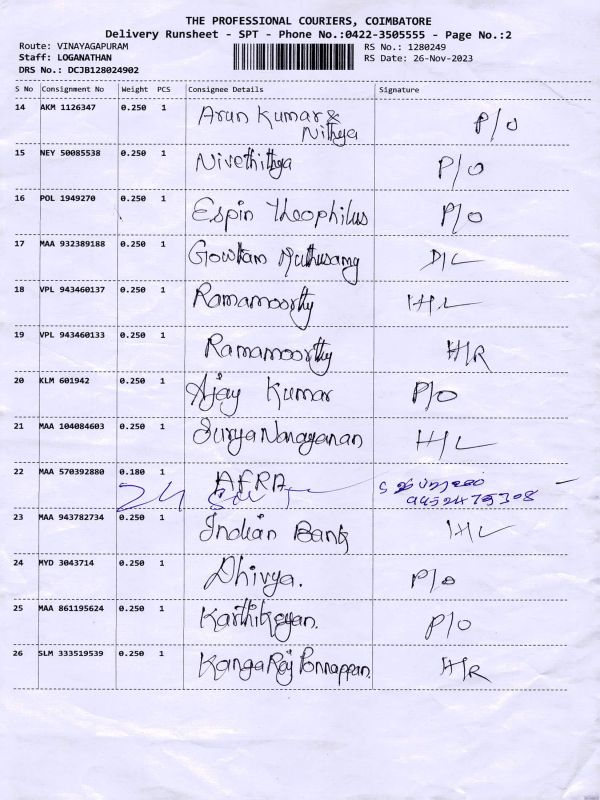 THE PROFESSIONAL COURIERS, COIMBATORE
Delivery Runsheet - SPT - Phone No.:0422-3505555 - Page No.:2
Route: VINAYAGAPURAM RS No.: 1280249
Staff: LOGANATHAN RS Date: 26-Nov-2023
DRS No.: DCJB128024902
S No Consignment No Weight PCS Consignee Details Signature
14 AKM 1126347 0.250 1 Arun Kumar & P/O
Nithya
15 NEY 50085538 0.250 1 Nivethithya P/O
16 POL 1949270 0.250 1 Espin Theophilus P/O
17 MAA 932389188 0.250 1 Gowtam Muthusamy D/L
18 VPL 943460137 0.250 1 Ramamoorthy H/L
19 VPL 943460133 0.250 1 Ramamoorthy H/R
20 KLM 601942 0.250 1 Ajay Kumar P/O
21 MAA 104084603 0.250 1 Surya Narayanan H/L
22 MAA 570392880 0.180 1 AFRA
24
23 MAA 943782734 0.250 1 Indian Bank H/L
24 MYD 3043714 0.250 1 Dhivya. P/O
25 MAA 861195624 0.250 1 Karthikeyan. P/O
26 SLM 333519539 0.250 1 KangaRaj Ponnappan. H/R